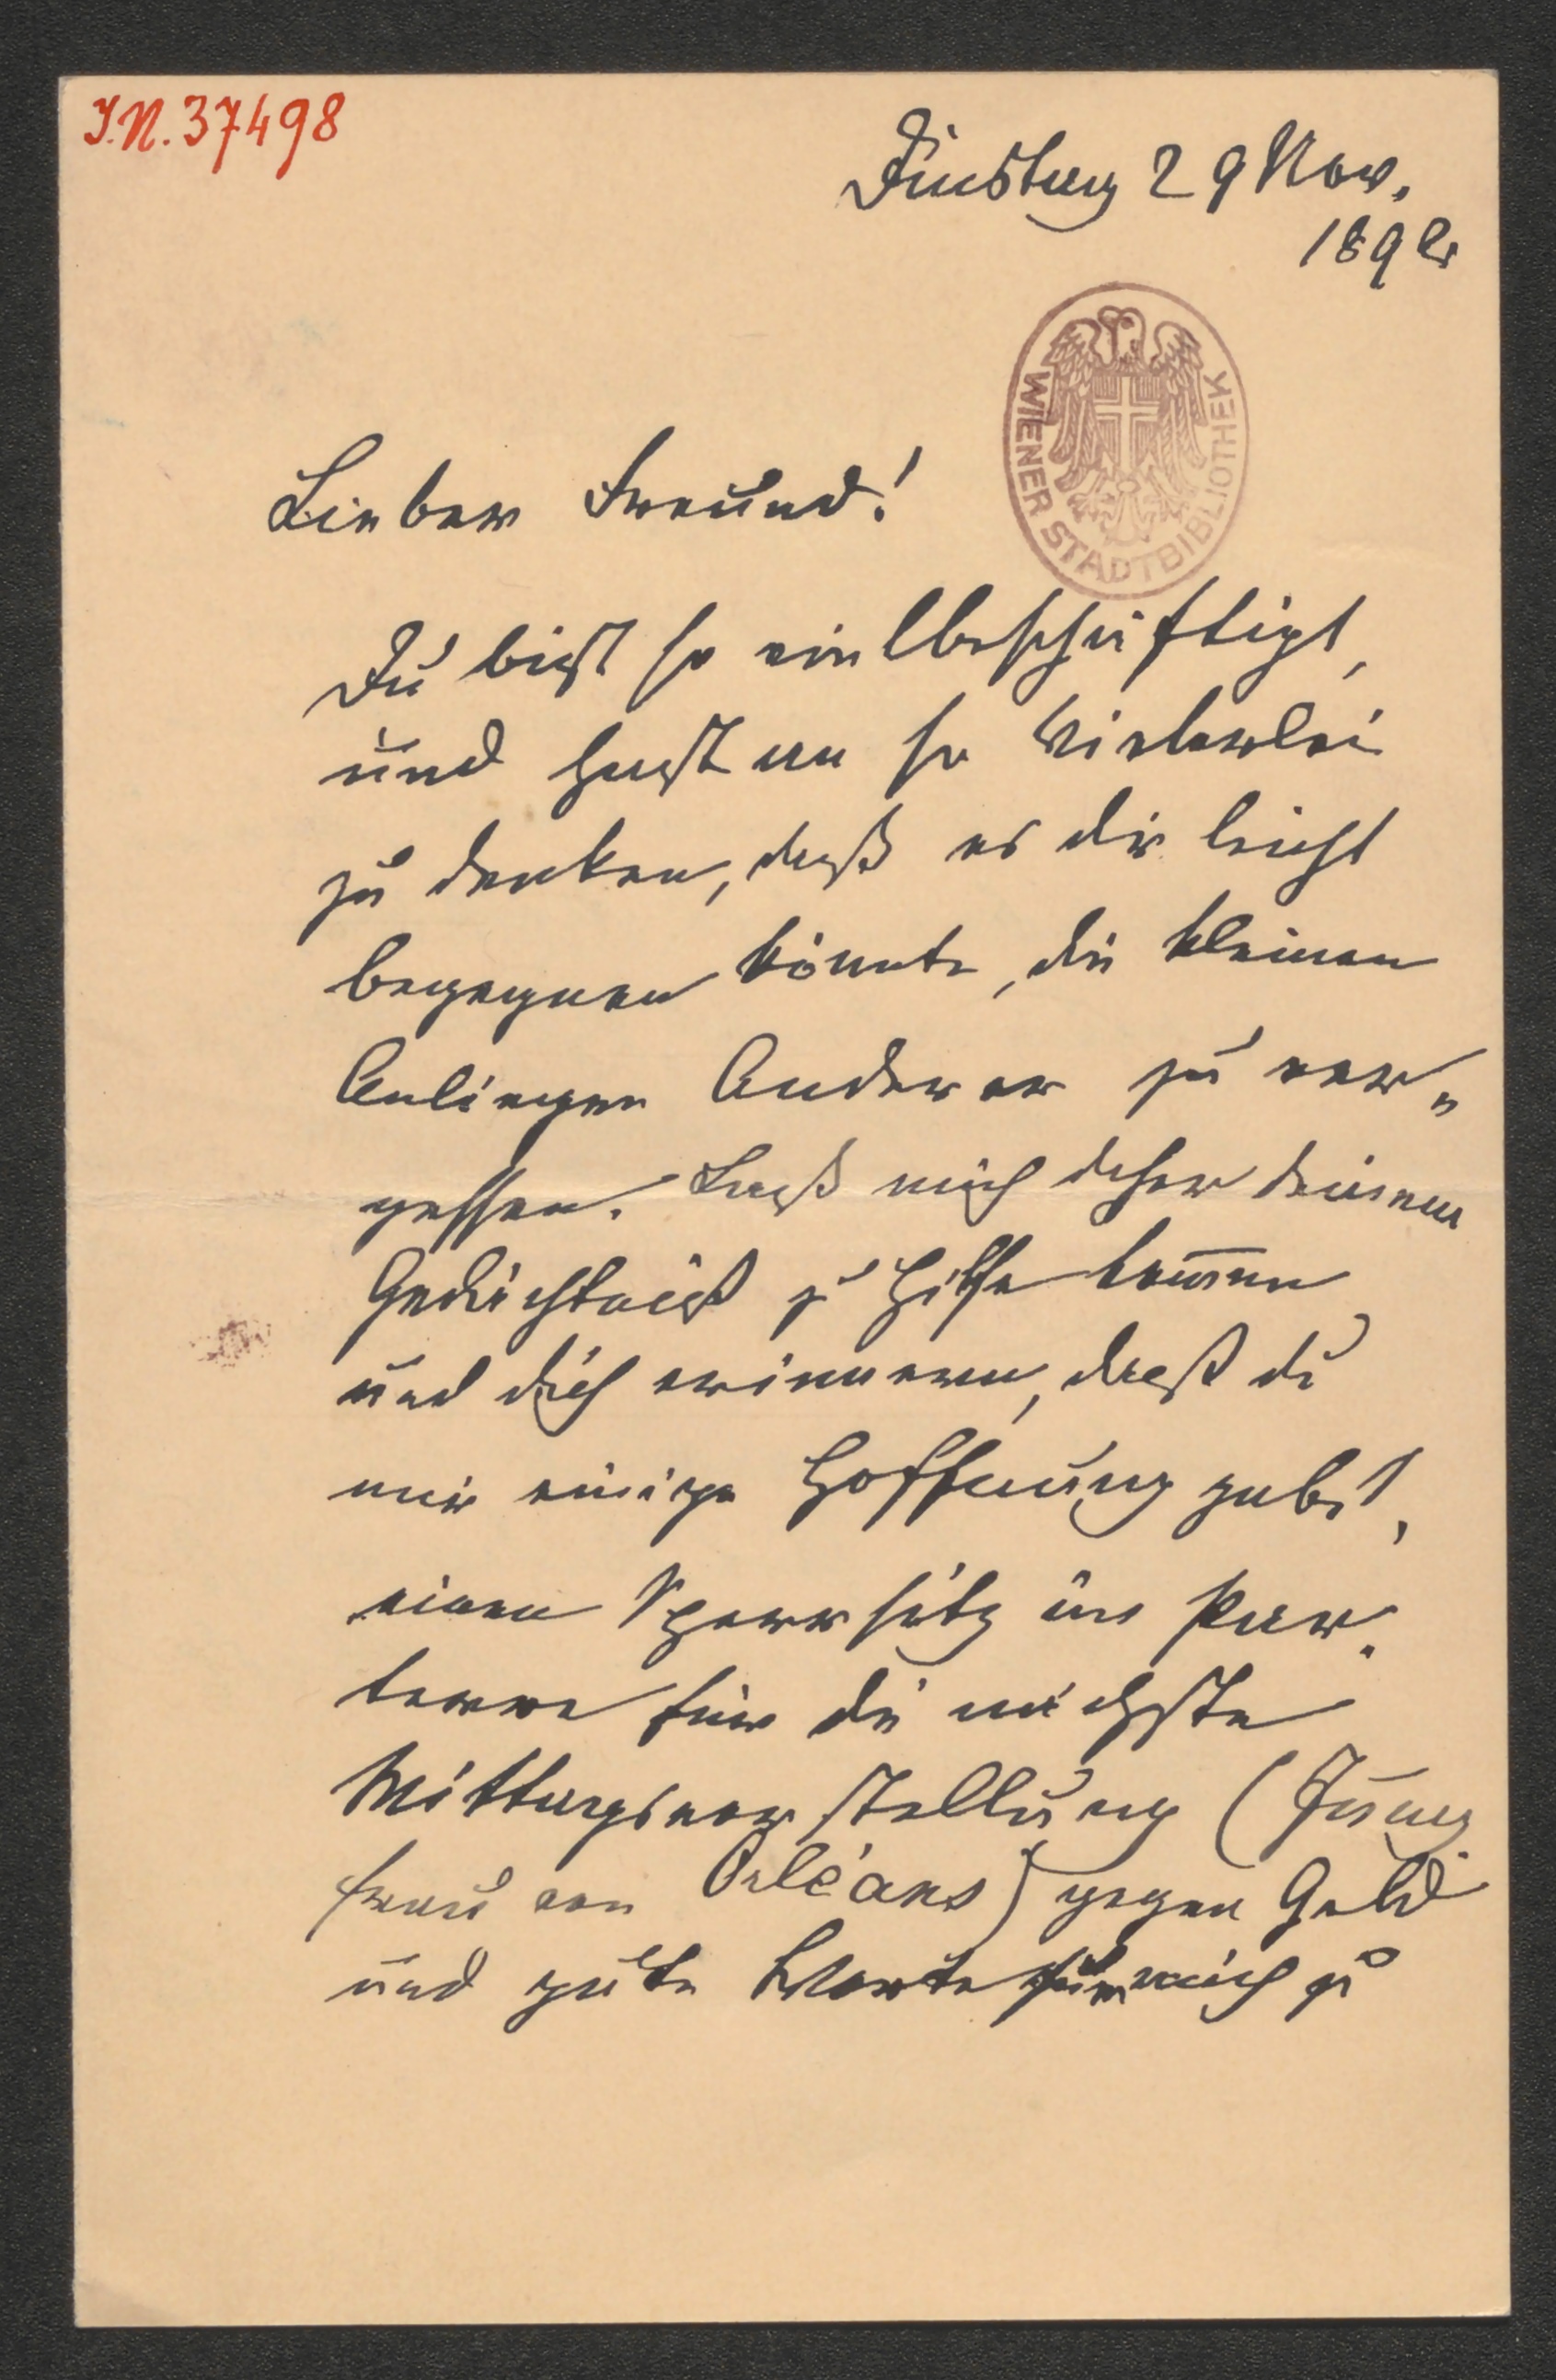 I.N. 37498
Dinstag 29 Nov.
1892
WIENER STADTBIBLIOTHEK
Lieber Freund!
Du bist so vielbeschäftigt,
und hast an so Vielerlei
zu denken, daß es dir leicht
begegnen könnte, die kleinen
Anliegen Anderer zu ver„
gessen. Laß mich daher deinem
Gedächtniß zu Hilfe kom̄en
und dich erinnern, daß du
mir einige Hoffnung gabst,
einen Sperrsitz im Par„
terre für die nächste
Mittagsvorstellung (Jung
frau von Orléans) gegen Geld
und gute Worte für mich zu